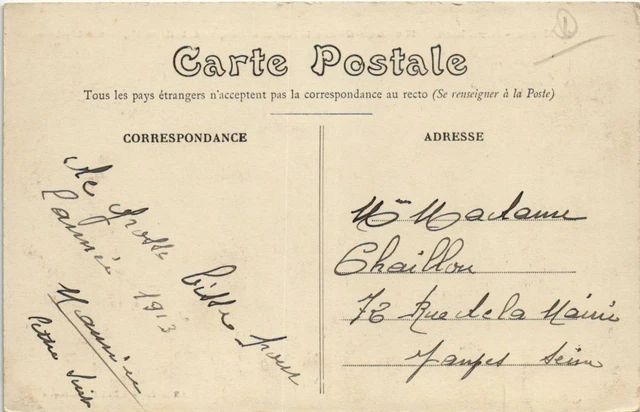 Carte Postale
Tous les pays étrangers n'acceptent pas la correspondance au recto (Se renseigner à la Poste)
CORRESPONDANCE
ADRESSE
de grosse bisse pour
l'année 1913
Madame
Chaillou
72 Rue de la Mairie
Seine